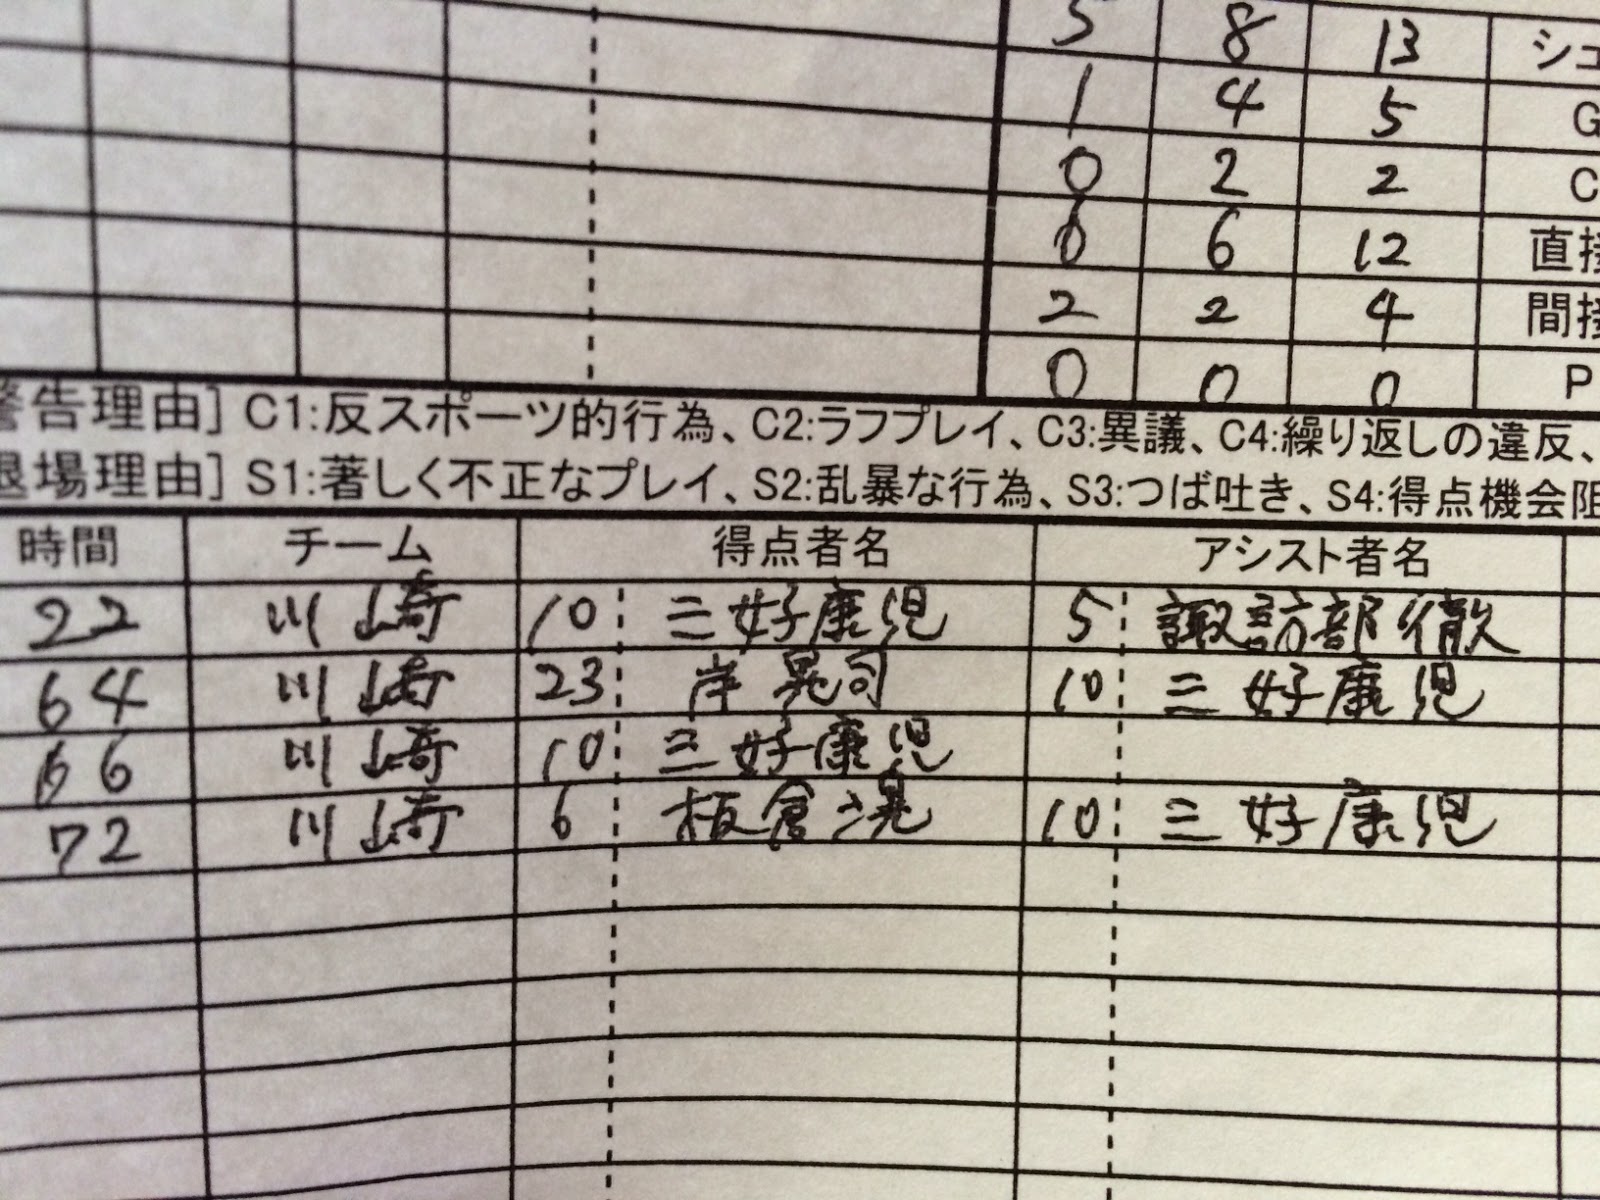 5 8 13 シュ
1 4 5 G
0 2 2 C
6 6 12 直接
2 2 4 間接
0 0 0 P
警告理由] C1:反スポーツ的行為、C2:ラフプレイ、C3:異議、C4:繰り返しの違反、
退場理由] S1:著しく不正なプレイ、S2:乱暴な行為、S3:つば吐き、S4:得点機会阻
時間 チーム 得点者名 アシスト者名
22 川崎 10 三好康児 5 諏訪部徹
64 川崎 23 岸晃司 10 三好康児
66 川崎 10 三好康児
72 川崎 6 板倉滉 10 三好康児